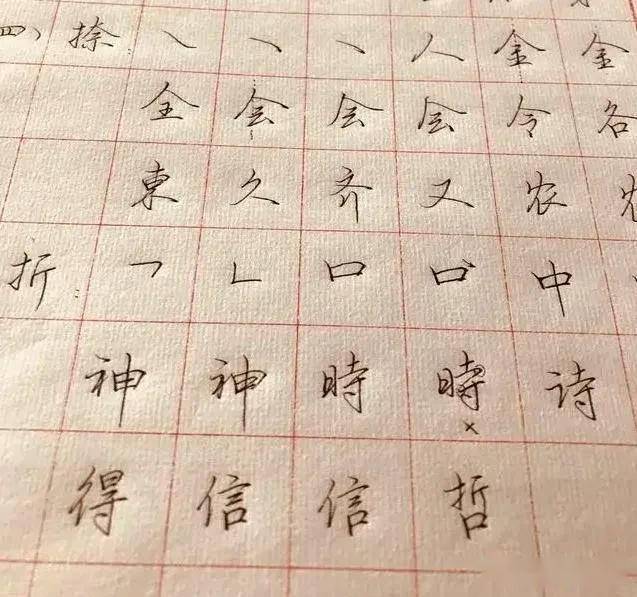 四、捺 ㇏ ㇏ ㇏ 人 金 金
全 会 会 会 令 各
東 久 齐 又 农 农
折: ㇕ ㇗ 口 口 中
神 神 時 時 × 诗
得 信 信 哲